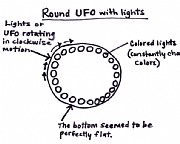 Round UFO with lights
Lights or
UFO rotating
in clockwise
motion.
Colored lights
(constantly cha
colors)
The bottom seemed to be
perfectly flat.